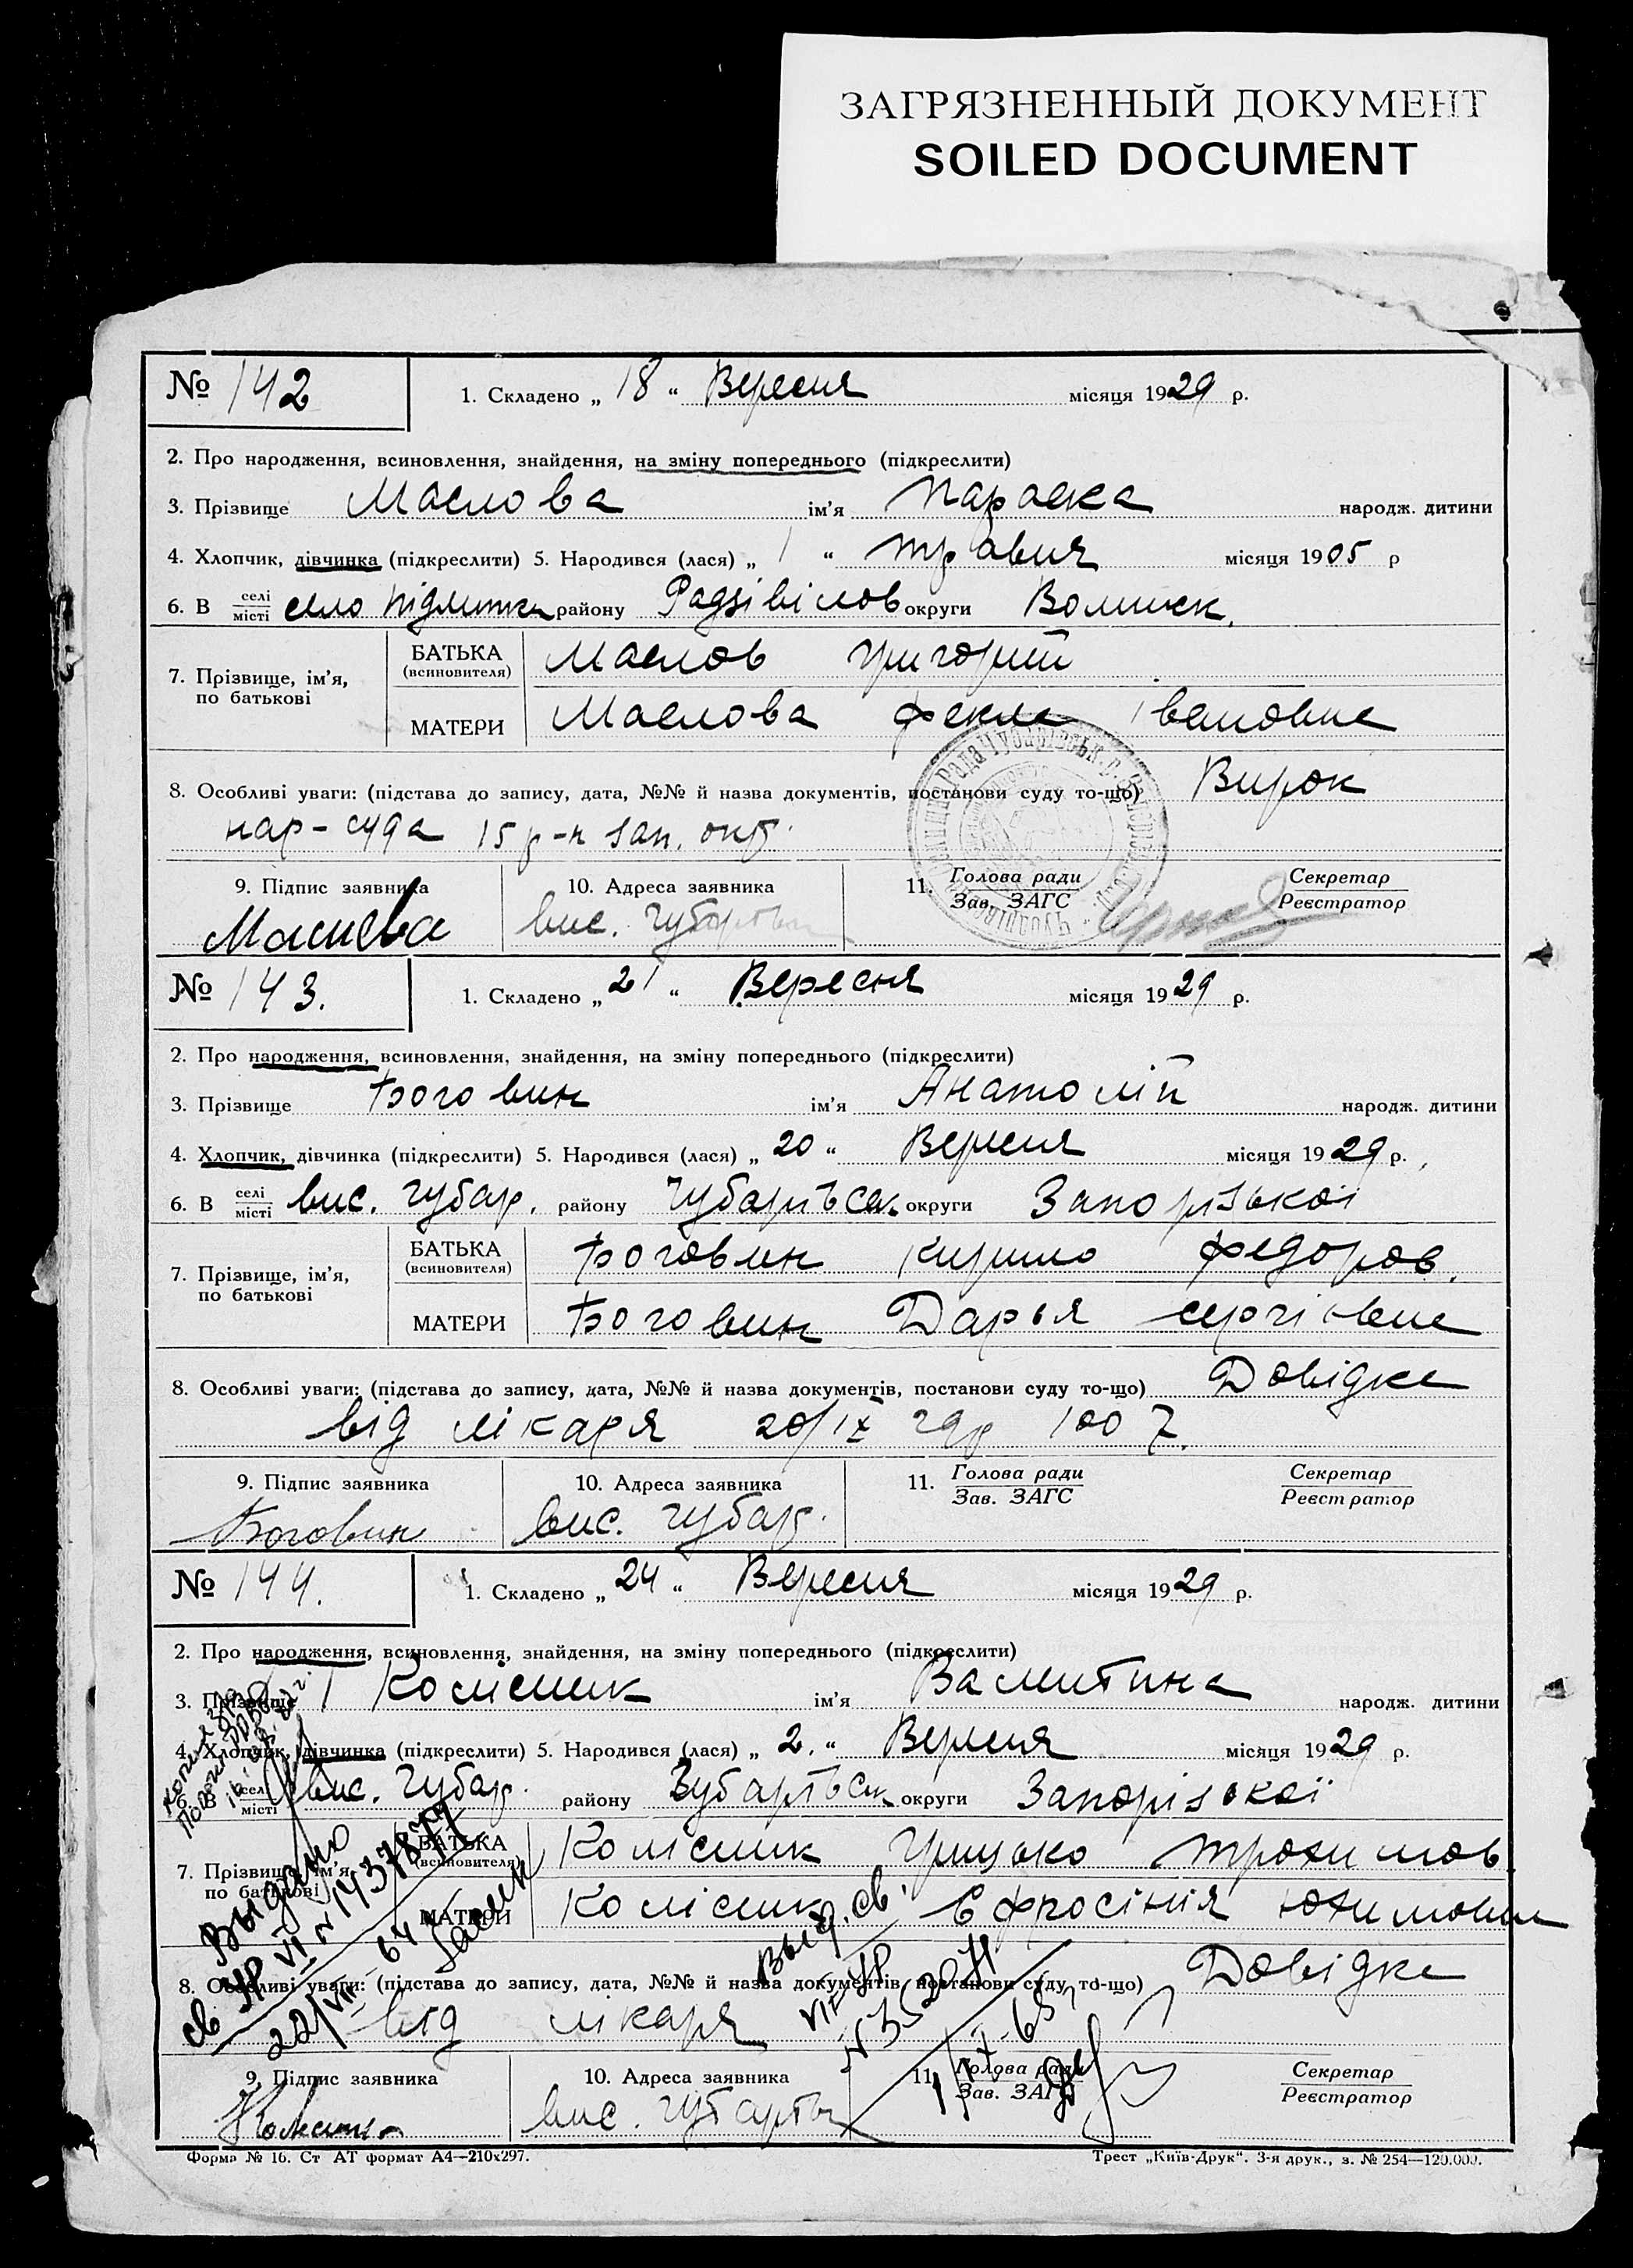 ЗАГРЯЗНЕННЫЙ ДОКУМЕНТ
SOILED DOCUMENT
№ 142
1. Складено „ 18 “ Вересня місяця 1929 р.
2. Про народження, всиновлення, знайдення, на зміну попереднього (підкреслити)
3. Прізвище Маслова ім'я Параска народж. дитини
4. Хлопчик, дівчинка (підкреслити) 5. Народився (лася) „ 1 “ травня місяця 1905 р
6. В селі місті село району Радзівілов округи Волинск.
7. Прізвище, ім'я, по батькові
БАТЬКА (всиновителя) Маслов Григорий
МАТЕРИ Маслова Фекла Івановна
8. Особливі уваги: (підстава до запису, дата, №№ й назва документів, постанови суду то-що) Вирок
нар-суда 15 р-н Зап. окр.
9. Підпис заявника 10. Адреса заявника 11. Голова ради Зав. ЗАГС Секретар Реєстратор
Маслова вис.
№ 143.
1. Складено „ 21 “ Вересня місяця 1929 р.
2. Про народження, всиновлення, знайдення, на зміну попереднього (підкреслити)
3. Прізвище Боговин ім'я Анатолій народж. дитини
4. Хлопчик, дівчинка (підкреслити) 5. Народився (лася) „ 20 “ Вересня місяця 1929 р.
6. В селі місті вис. Чубар. району округи Запорізькоі
7. Прізвище, ім'я, по батькові
БАТЬКА (всиновителя) Боговин Кирило Федоров.
МАТЕРИ Боговин Дарья Сергіевна
8. Особливі уваги: (підстава до запису, дата, №№ й назва документів, постанови суду то-що) Довідка
від лікаря 20/IX 29р 1007.
9. Підпис заявника 10. Адреса заявника 11. Голова ради Зав. ЗАГС Секретар Реєстратор
Боговин вис. Чубар.
№ 144.
1. Складено „ 24 “ Вересня місяця 1929 р.
2. Про народження, всиновлення, знайдення, на зміну попереднього (підкреслити)
3. Прізвище Колісник ім'я Валентина народж. дитини
4. Хлопчик, дівчинка (підкреслити) 5. Народився (лася) „ 2. “ Вересня місяця 1929 р.
6. В селі місті вис. Чубар. району округи Запорізькоі
7. Прізвище, ім'я, по батькові
БАТЬКА (всиновителя) Колісник Грицько Трохимов
МАТЕРИ Колісник Єфросінія Юхимовна
8. Особливі уваги: (підстава до запису, дата, №№ й назва документів, постанови суду то-що) Довідка
від лікаря
Выдано
св
22/VII 64
Выд. св.
9. Підпис заявника 10. Адреса заявника 11. Голова ради Зав. ЗАГС Секретар Реєстратор
вис.
Форма № 16. Ст АТ формат А4—210х297.
Трест „Київ-Друк“. 3-я друк., з. № 254—120.000.